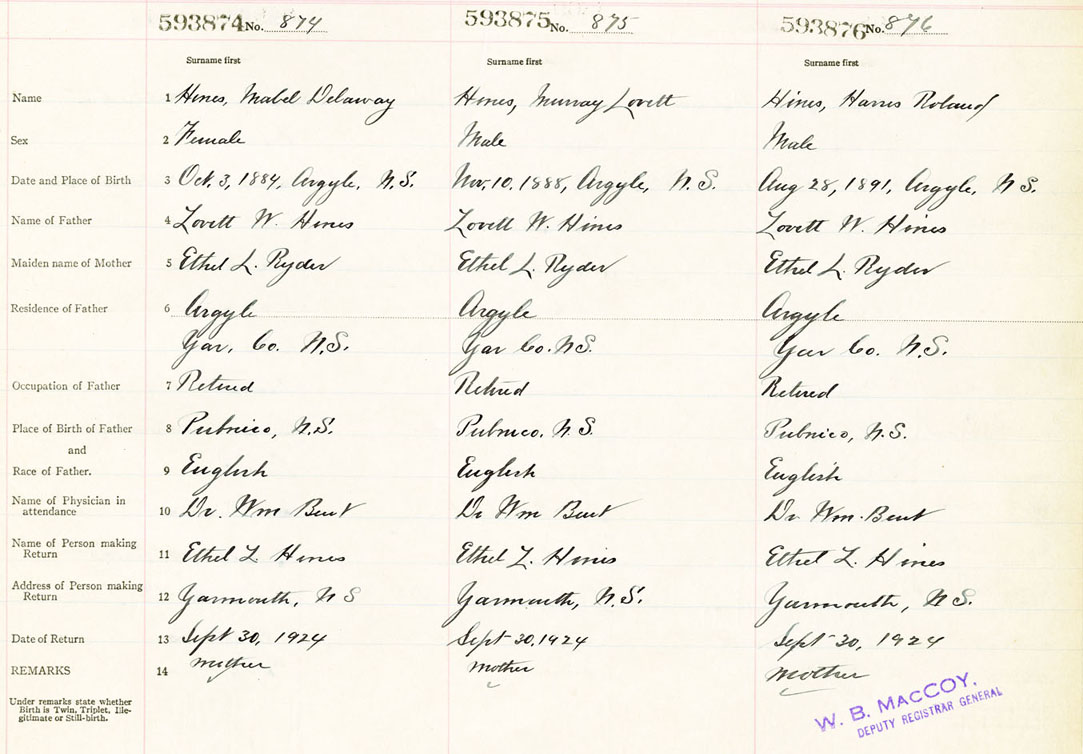 593874 No. 874 593875 No. 875 593876 No. 876
Surname first Surname first Surname first
Name 1 Hines, Mabel Delaway Hines, Murray Lovett Hines, Harris Roland
Sex 2 Female Male Male
Date and Place of Birth 3 Oct. 3, 1884, Argyle, N.S. Nov. 10, 1888, Argyle, N.S. Aug 28, 1891, Argyle, N S.
Name of Father 4 Lovett W. Hines Lovett W. Hines Lovett W. Hines
Maiden name of Mother 5 Ethel L. Ryder Ethel L. Ryder Ethel L. Ryder
Residence of Father 6 Argyle Argyle Argyle
Yar. Co. N.S. Yar Co. N.S. Yar Co. N.S.
Occupation of Father 7 Retired Retired Retired
Place of Birth of Father 8 Pubnico, N.S. Pubnico. N.S. Pubnico, N.S.
and
Race of Father. 9 English English English
Name of Physician in
attendance 10 Dr. Wm Bent Dr Wm Bent Dr Wm. Bent
Name of Person making
Return 11 Ethel L Hines Ethel L. Hines Ethel L. Hines
Address of Person making
Return 12 Yarmouth, N S Yarmouth, N.S. Yarmouth, N S.
Date of Return 13 Sept 30, 1924 Sept 30, 1924 Sept 30, 1924
REMARKS 14 mother mother mother
Under remarks state whether
Birth is Twin, Triplet, Ille-
gitimate or Still-birth.
W. B. MACCOY.
DEPUTY REGISTRAR GENERAL